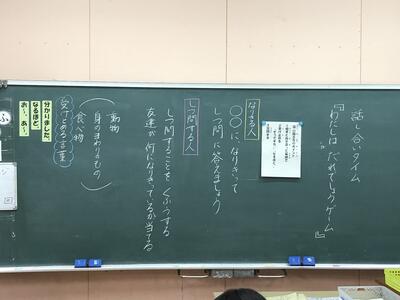 話し合いタイム
『わたしは だれでしょうゲーム』
なりきる人
○○に なりきって
しつ問に答えましょう
しつ問する人
しつ問することを くふうする
友達が 何になりきっているか当てる
動物
(身のまわりのもの)
食べ物
受けとめる言葉
分かりました。
なるほど。
お～、あ～
ふ